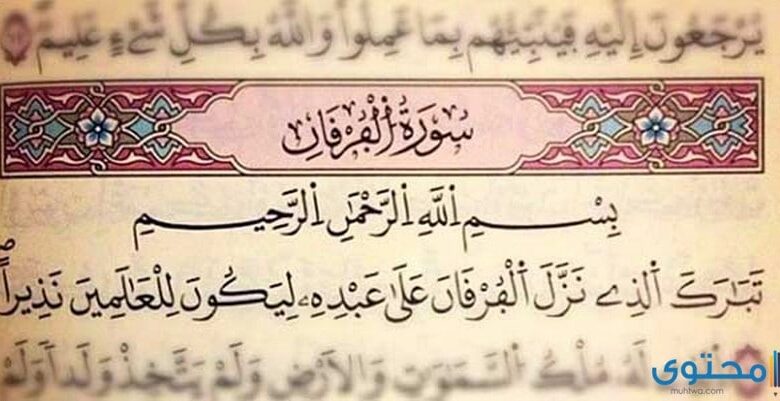 يُرْجَعُونَ إِلَيْهِ فَيُنَبِّئُهُم بِمَا عَمِلُوا۟ وَاللَّهُ بِكُلِّ شَىْءٍ عَلِيمٌ
سُورَةُ اُ۬لْفُرْقَانِ
بِسْمِ اِ۬للَّهِ اِ۬لرَّحْمَٰنِ اِ۬لرَّحِيمِ
تَبَٰرَكَ اَ۬لذِے نَزَّلَ اَ۬لْفُرْقَانَ عَلَىٰ عَبْدِهِۦ لِيَكُونَ لِلْعَٰلَمِينَ نَذِيراً
لَهُۥ مُلْكُ اُ۬لسَّمَٰوَٰتِ وَالَارْضِ وَلَمْ يَتَّخِذْ وَلَداً وَلَمْ
محتوى
muhtwa.com